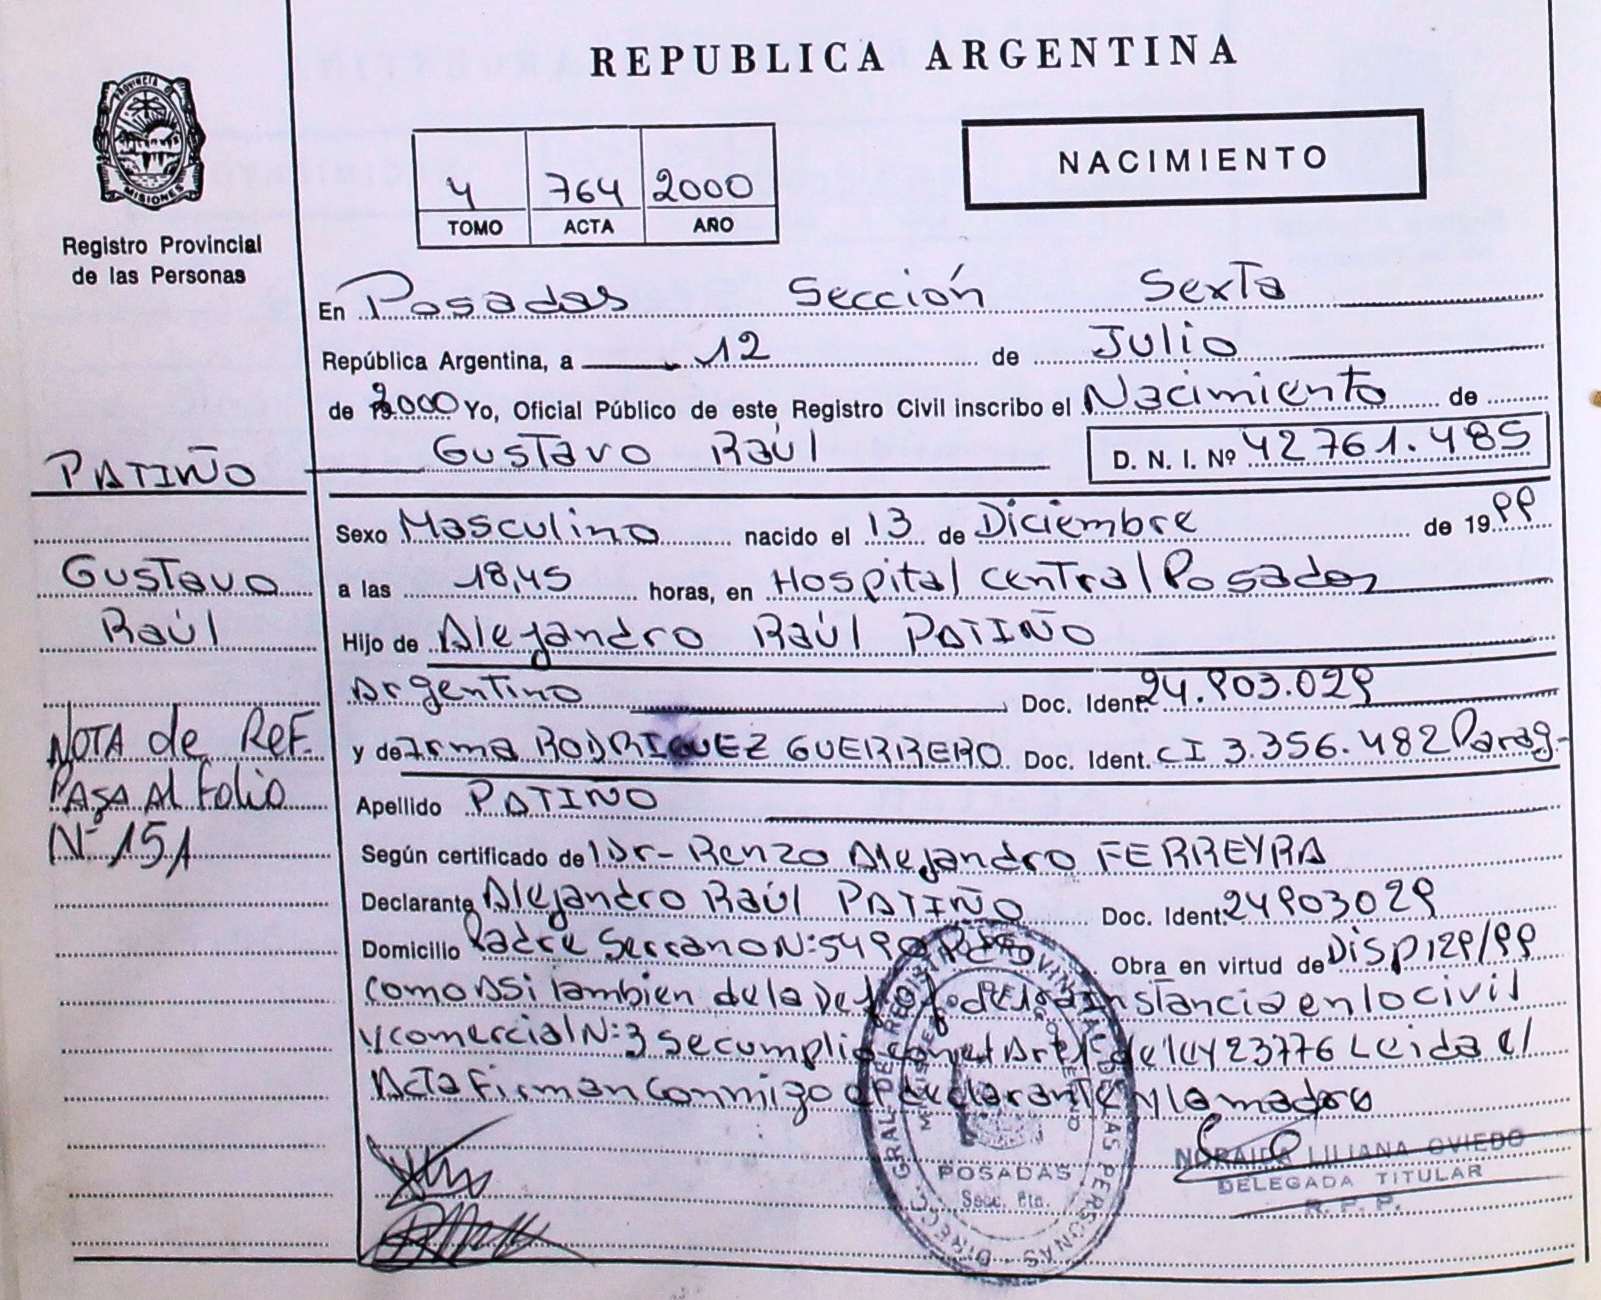 REPUBLICA ARGENTINA
PROVINCIA DE
MISIONES
Registro Provincial
de las Personas
4 764 2000
TOMO ACTA AÑO
NACIMIENTO
En Posadas Sección Sexta
República Argentina, a 12 de Julio
de 2000 Yo, Oficial Público de este Registro Civil inscribo el Nacimiento de
Gustavo Raúl D. N. I. Nº 42761.485
PATIÑO
Gustavo
Raúl
NOTA de REF.
PASA Al Folio
Nº 151
Sexo Masculino nacido el 13 de Diciembre de 1999
a las 18,45 horas, en Hospital central Posadas
Hijo de Alejandro Raúl PATIÑO
Argentino Doc. Ident. 24.903.029
y de Irma RODRIGUEZ GUERRERO Doc. Ident. CI 3.356.482 Parag-
Apellido PATIÑO
Según certificado del Dr- Renzo Alejandro FERREYRA
Declarante Alejandro Raúl PATIÑO Doc. Ident. 24903029
Domicilio Padre Serrano N:5490 Pdas Obra en virtud de DISP 129/99
como Asi Tambien de la Def. Of. de 1ra instancia en lo civil
y comercial N:3 se cumplio con el Art 1º de ley 23776 Leida el
Acta Firman conmigo el declarante y la madre
DIRECC. GRAL DE LA REGISTRO PROVINCIAL DE LAS PERSONAS
MINISTERIO DE GOBIERNO
POSADAS
Secc. 6ta.
NORAIDA LILIANA OVIEDO
DELEGADA TITULAR
R. P. P.